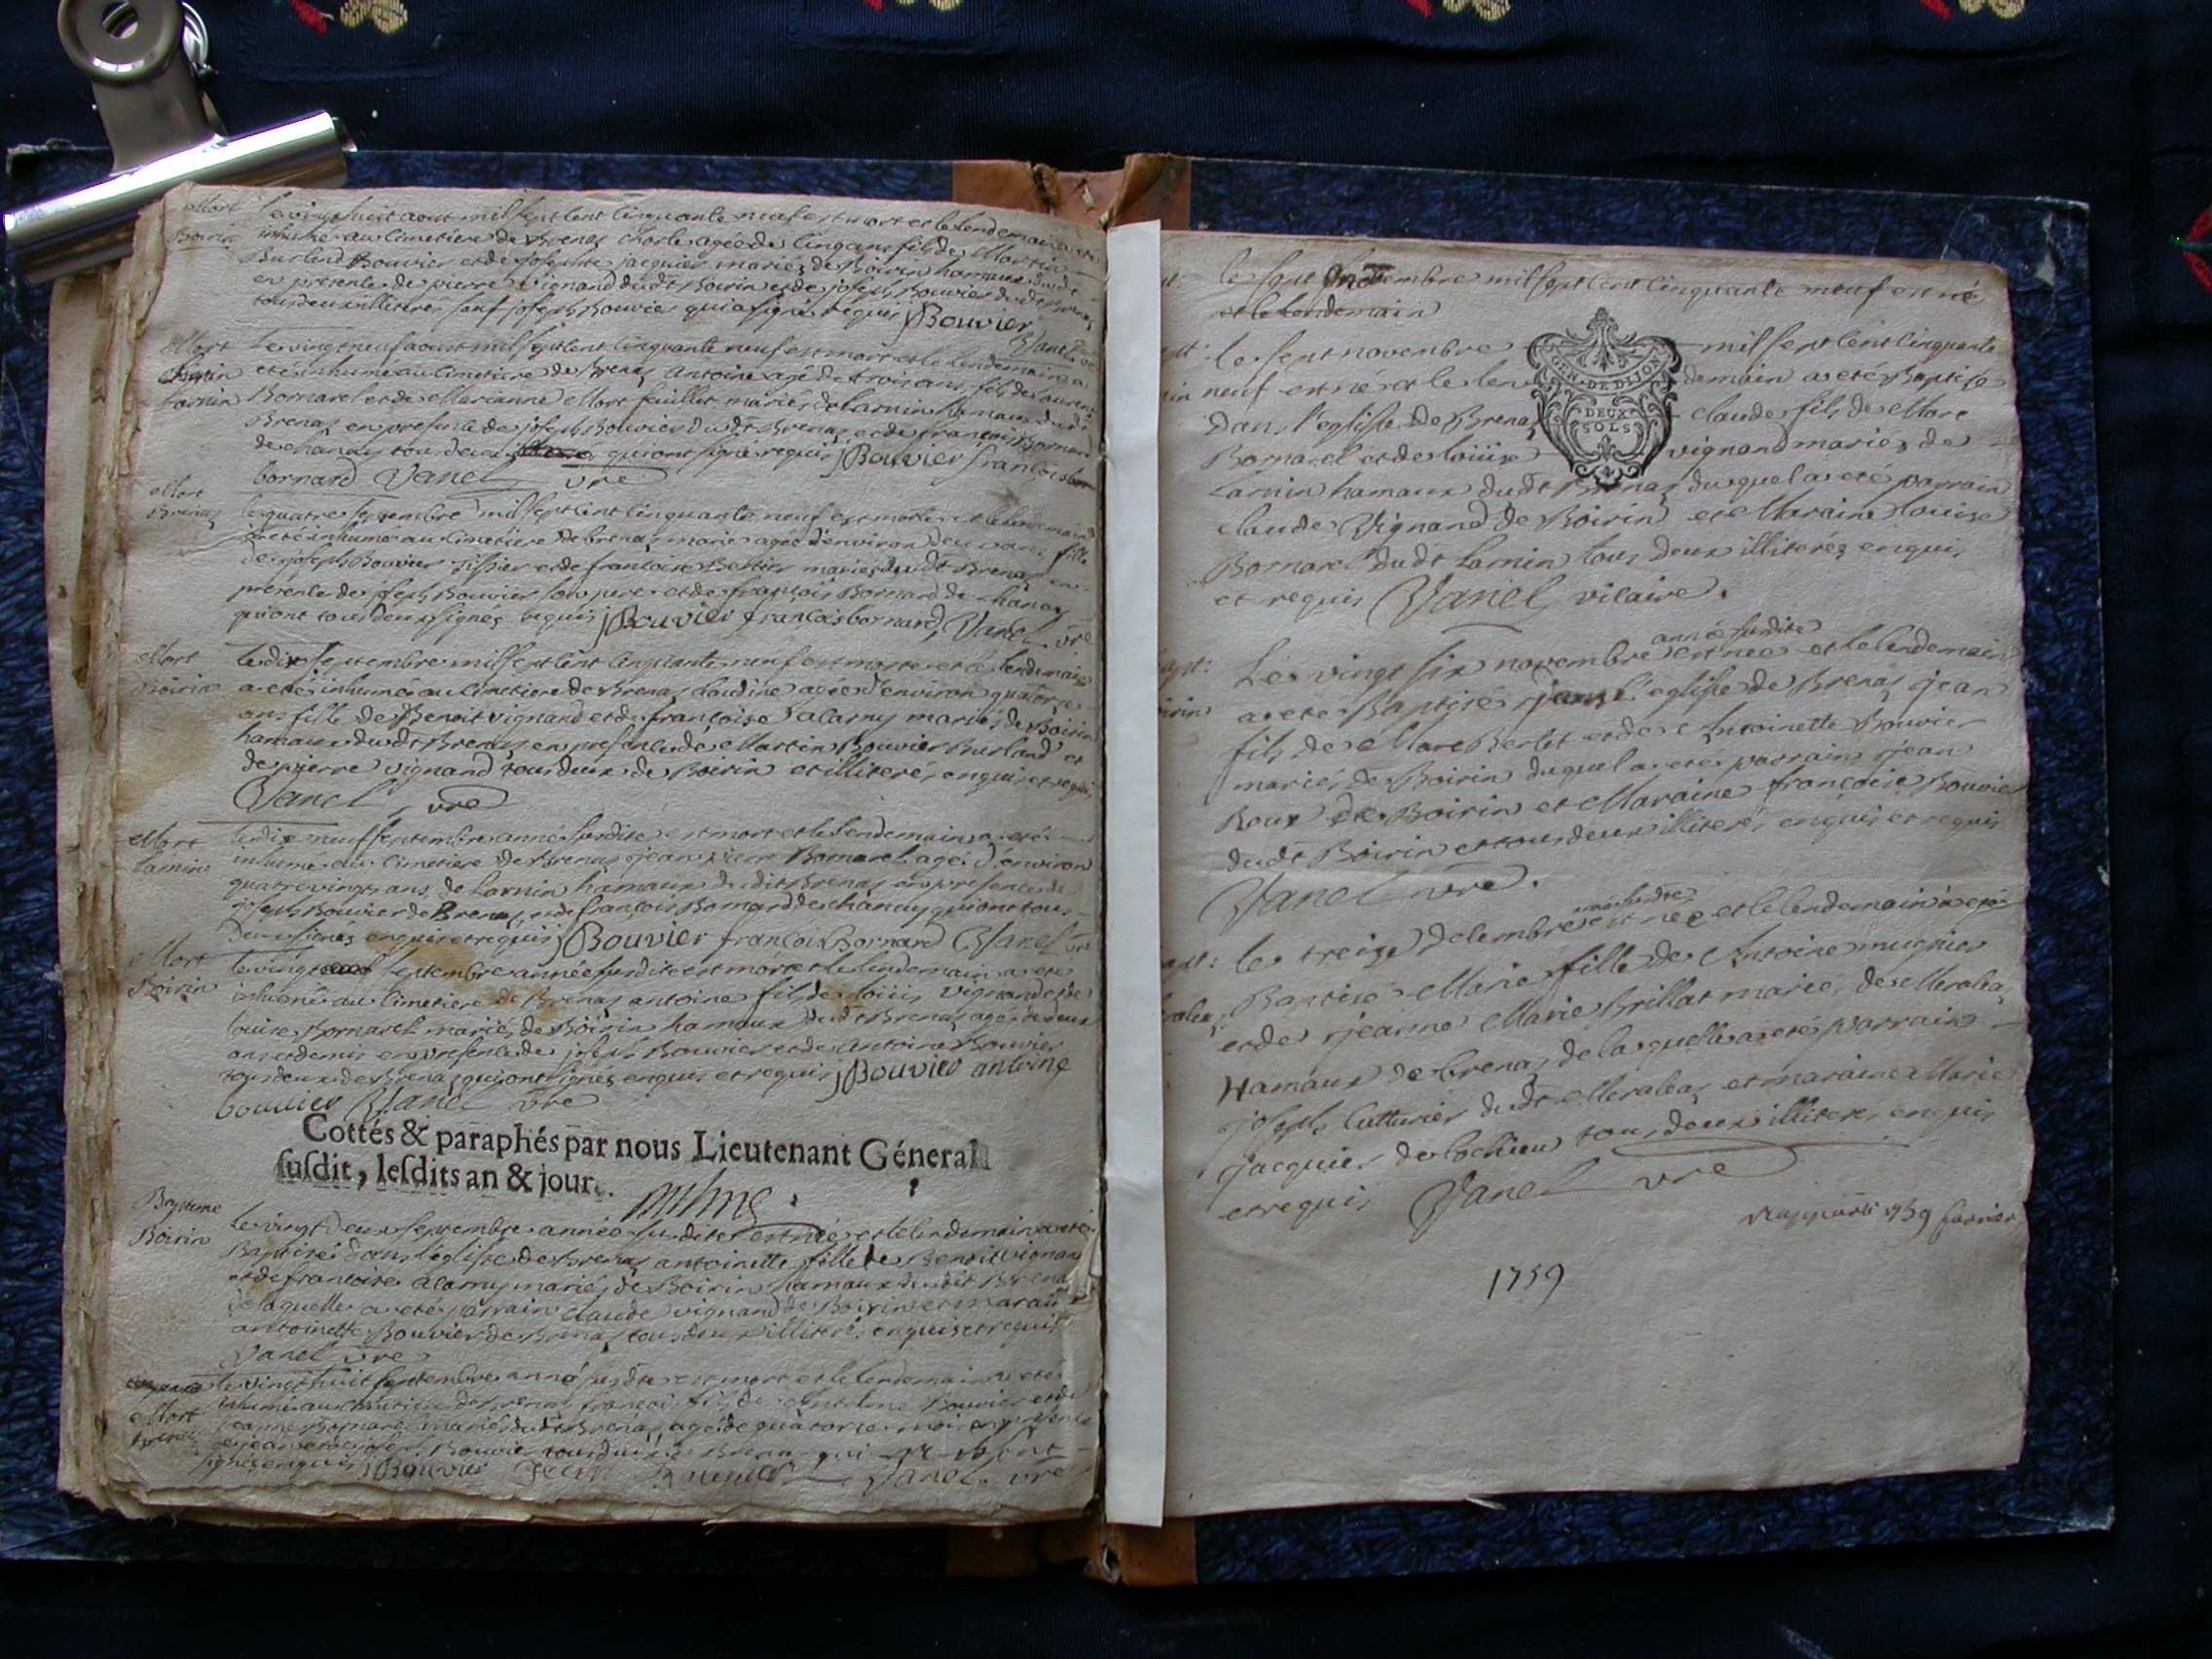 Mort
Boirin
le vingt huit aout mil sept cent cinquante neuf est mort et le lendemain a eté
inhumé au cimetiere de Brenas charle agée de cinq ans fils de Martin
Burland Bouvier et de josephte jacquier mariés de Boirin hamaux dudt
en présence de pierre vignand dudt Boirin et de joseph Bouvier dudt Brenas
tous deux illiterés sauf joseph Bouvier qui a signé requis JBouvier
Vanel vre
Mort
Larnin
le vingt neuf aoust mil sept cent cinquante neuf est mort et le lendemain a
eté inhumé au cimetiere de Brenas Antoine agé de trois ans fils de Laurent
Bornarel et de Marianne Mort feuillet mariés de Larnin hamaux dudt
Brenas en presence de joseph Bouvier dudt Brenas et de francois Bornard
de chanay tous deux qui ont signé requis JBouvier francois bor
bornard Vanel vre
Mort
Brenas
le quatre septembre mil sept cent cinquante neuf est morte et le lendemain
a eté inhumé au cimetiere de brenas marie agée d'environ deux ans fille
de joseph Bouvier tissier et de francoise Berlier mariés dudt Brenas en
présence de joseph Bouvier son pere et de françois Bornard de chanay
qui ont tous deux signés requis JBouvier francois bornard Vanel vre
Mort
Boirin
le dix septembre mil sept cent cinquante neuf est morte et le lendemain
a eté inhumé au cimetiere de Brenas Claudine agée d'environ quatorze
ans fille de Benoit vignand et de françoise alarny mariés de Boirin
hamaux dudt Brenas en presence de Martin Bouvier Burland et
de pierre vignand tous deux de Boirin et illiterés enquis et requis
Vanel vre
Mort
Larnin
le dix neuf septembre année susdite est mort et le lendemain a eté
inhumé au cimetiere de Brenas jean pierre Bornarel agé d'environ
quatre vingts ans de Larnin hamaux dudit Brenas en presence de
joseph Bouvier de Brenas et de françois Bornard de chanay qui ont tous
deux signés enquis et requis JBouvier francois Bornard Vanel vre
Mort
Boirin
le vingt septembre année susdite est mort et le lendemain a eté
inhumé au cimetiere de Brenas antoine fils de loüis vignand et de
louise Bornarel mariés de Boirin hamaux dudt Brenas agé de deux
ans et demis en presence de joseph Bouvier et de Antoine Bouvier
tous deux de Brenas qui ont signés enquis et requis JBouvier antoine
bouuier Vanel vre
Cottés & paraphés par nous Lieutenant Géneral
susdit, lesdits an & jour.
Bapteme
Boirin
le vingt deux septembre année susdite est née et le lendemain a eté
Baptisé dans l'eglise de Brenas antoinette fille de Benoit vignand
et de francoise alarny mariés de Boirin hamaux dudit Brenas
de laquelle a eté parrain claude vignand de Boirin et marain
antoinette Bouvier de Brenas tous deux illiterés enquis et requis
Vanel vre
Mort
Brenas
le vingt huit septembre année susdte est mort et le lendemain a eté
inhumé au cimetiere de Brenas françois fils de Anthelme Bouvier et de
jeanne Bornarel mariés dudt Brenas agé de quatorze mois en présence
de jean et de joseph Bouvier tous deux de Brenas qui se sont
signés enquis JBouvier Jean Bouuier Vanel vre
le sept novembre mil sept cent cinquante neuf est né
et le lendemain
GEN. DE DIJON
DEUX
SOLS
le sept novembre mil sept cent cinquante
neuf est né et le lendemain a eté Baptisé
Dans l'eglise de Brenas claude fils de Marc
Bornarel et de loüise vignand mariés de
Larnin hamaux dudt Brenas duquel a eté parrain
claude Vignand de Boirin et Maraine louise
Bornarel dudt Larnin tous deux illiterés enquis
et requis Vanel vicaire.
année susdite
Le vingt six novembre est née et le lendemain
a eté Baptisé dans l'eglise de Brenas jean
fils de Marc Berlet et de Antoinette Bouvier
mariés de Boirin duquel a eté parrain jean
Roux de Boirin et Maraine françoise Bouvier
dudt Boirin et tous deux illiterés enquis et requis
Vanel vre.
année susdite
le treize decembre est née et le lendemain a eté
Baptisé Marie fille de Antoine mugnier
et de jeanne Marie Brillat mariés de Meraléa
Hamaux de brenas de laquelle a eté parrain
joseph Cutturier dudt Meraleas et maraine Marie
jacquier de lochieu tous deux illiterés enquis
et requis Vanel vre
1759